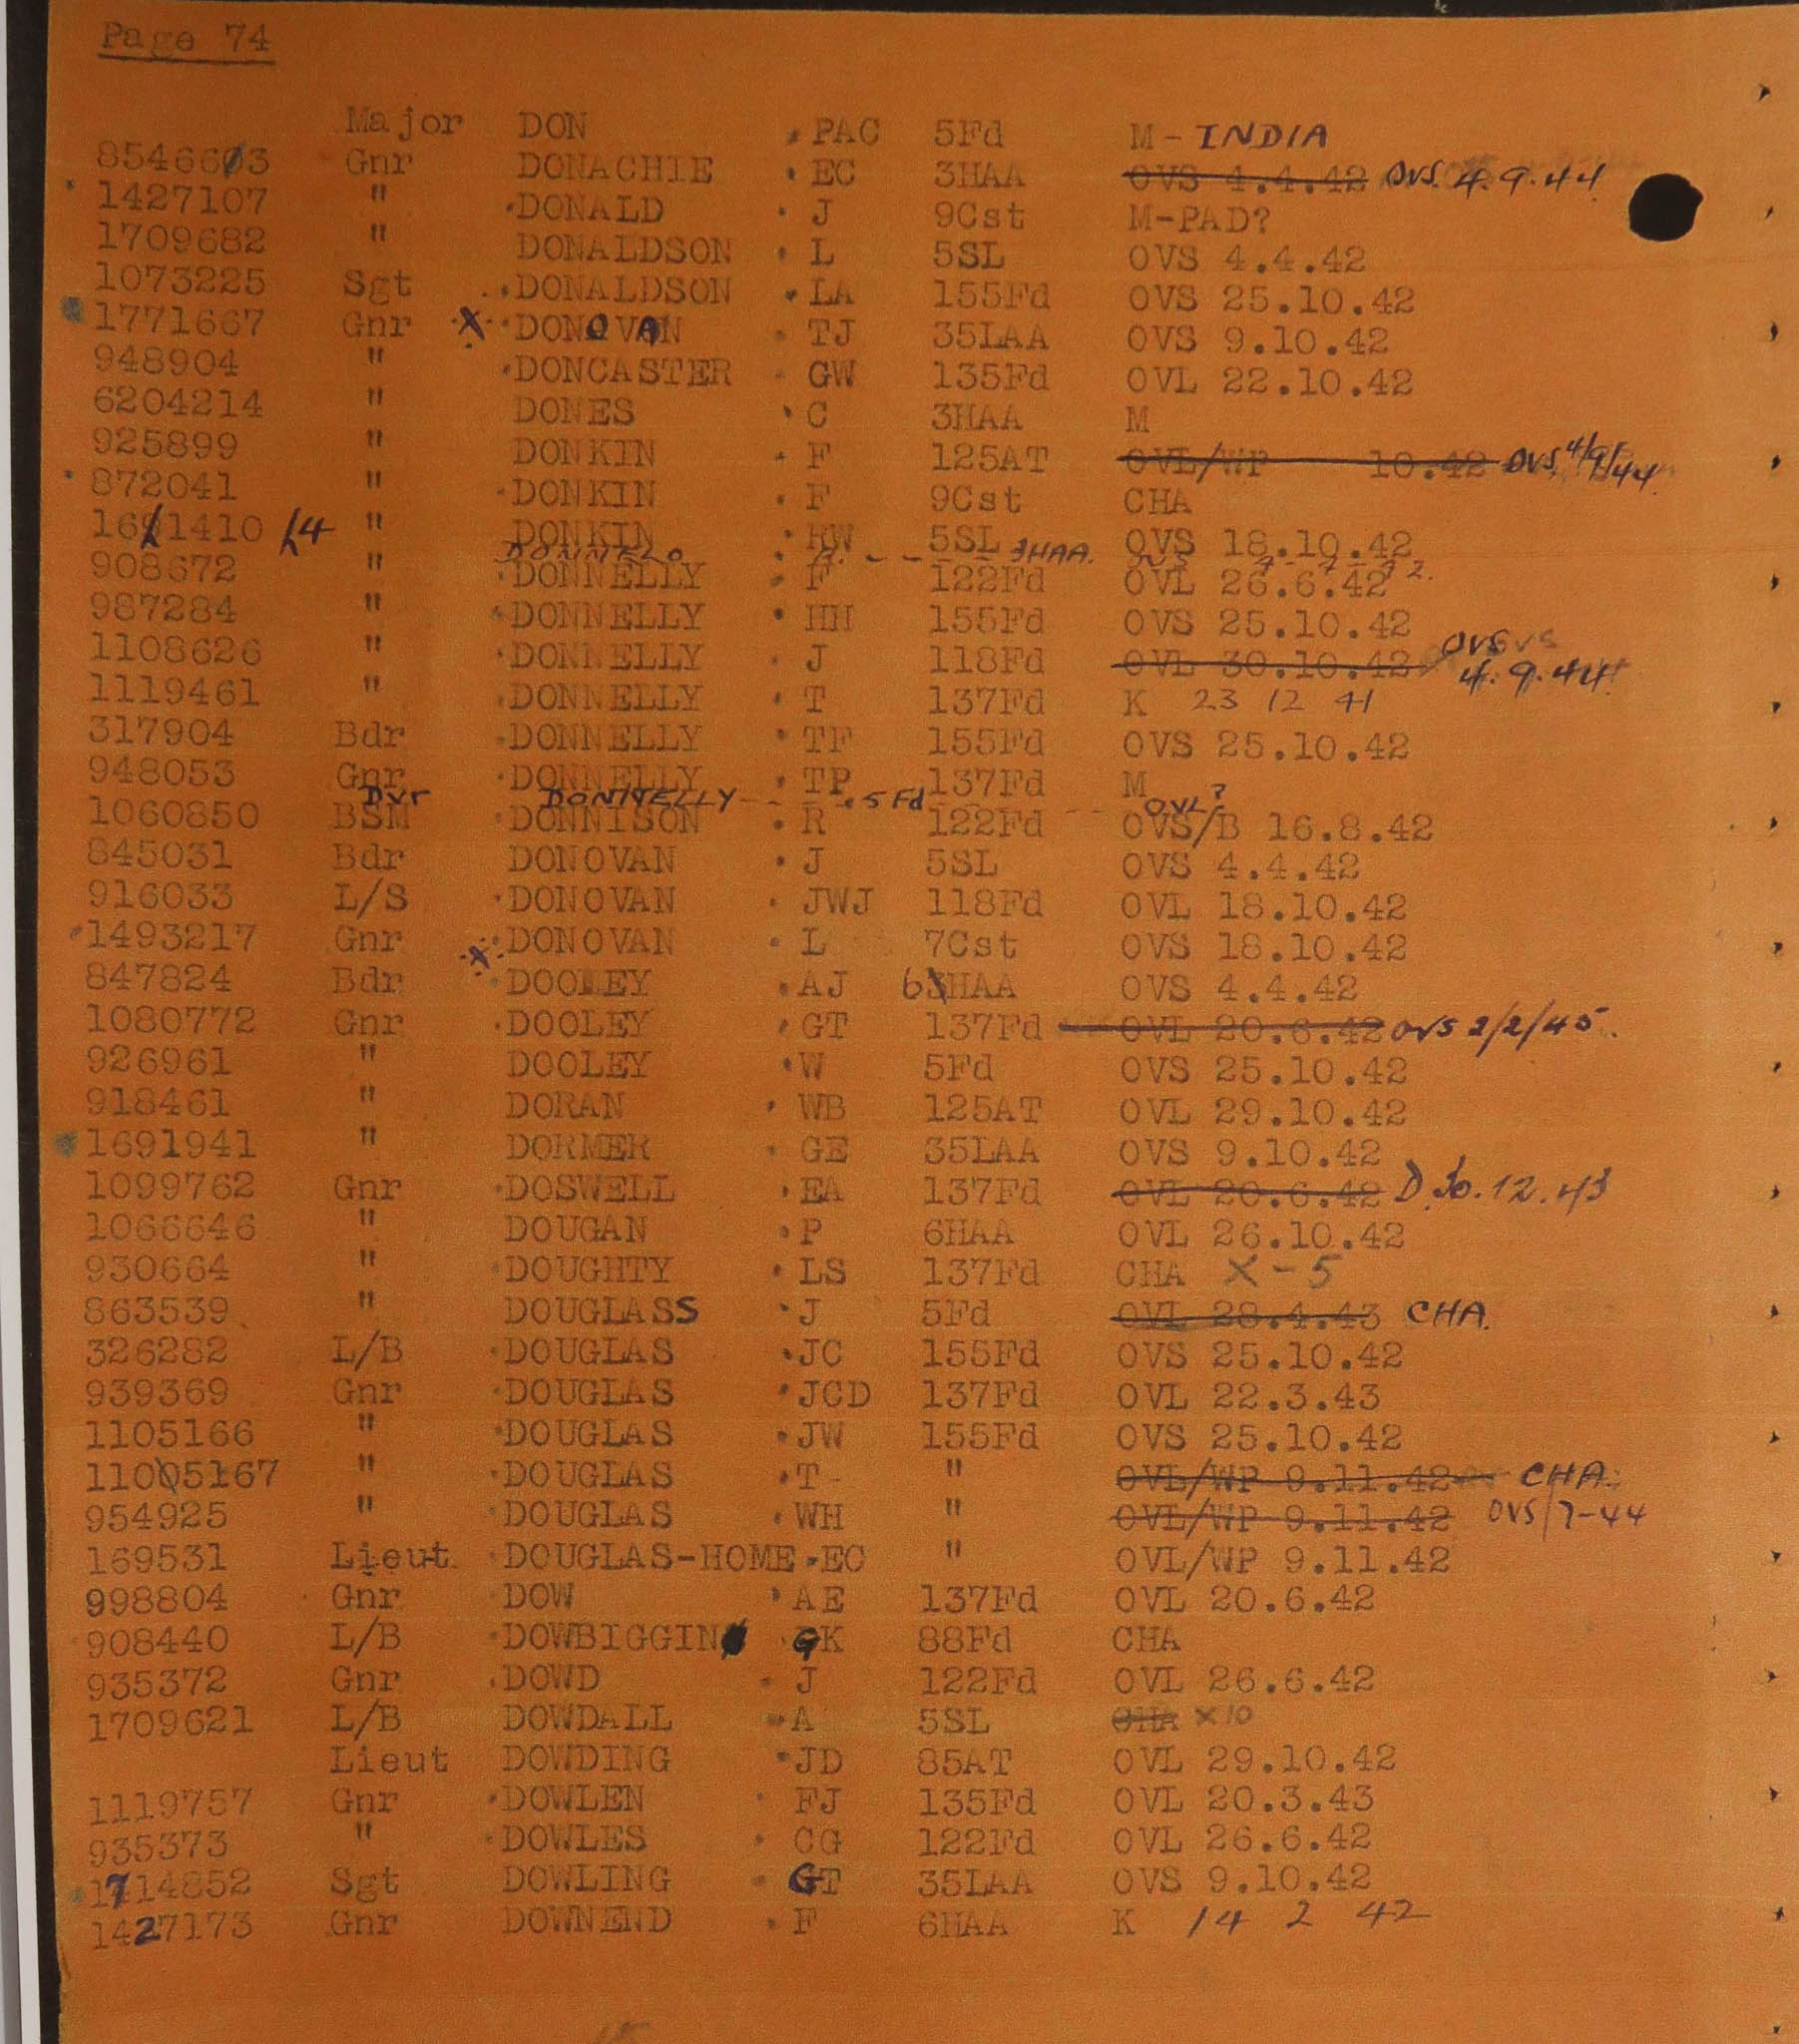 Page 74
Major DON PAC 5Fd M - INDIA
8546603 Gnr DONACHIE EC 3HAA OVS 4.4.42 OVS. 4.9.44
1427107 " DONALD J 9Cst M-PAD?
1709682 " DONALDSON L 5SL OVS 4.4.42
1073225 Sgt DONALDSON LA 155Fd OVS 25.10.42
1771667 Gnr X DONOVAN TJ 35LAA OVS 9.10.42
948904 " DONCASTER GW 135Fd OVL 22.10.42
6204214 " DONES C 3HAA M
925899 " DONKIN F 125AT OVL/WP 10.42 OVS 4/9/44
872041 " DONKIN F 9Cst CHA
1611410 /4 " DONKIN RW 5SL OVS 18.10.42
DONNELO A. - - - 3HAA. OVS 4-4-42.
908672 " DONNELLY F 122Fd OVL 26.6.42
987284 " DONNELLY HH 155Fd OVS 25.10.42
1108626 " DONNELLY J 118Fd OVL 30.10.42 OVS 4.9.44
1119461 " DONNELLY T 137Fd K 23 12 41
317904 Bdr DONNELLY TF 155Fd OVS 25.10.42
948053 Gnr DONNELLY TP 137Fd M
Dvr DONNELLY - - - 5Fd - - - OVL?
1060850 BSM DONNISON R 122Fd OVS/B 16.8.42
845031 Bdr DONOVAN J 5SL OVS 4.4.42
916033 L/S DONOVAN JWJ 118Fd OVL 18.10.42
1493217 Gnr DONOVAN L 7Cst OVS 18.10.42
847824 Bdr X DOOLEY AJ 63HAA OVS 4.4.42
1080772 Gnr DOOLEY GT 137Fd OVL 20.6.42 OVS 2/2/45.
926961 " DOOLEY W 5Fd OVS 25.10.42
918461 " DORAN WB 125AT OVL 29.10.42
1691941 " DORMER GE 35LAA OVS 9.10.42
1099762 Gnr DOSWELL EA 137Fd OVL 20.6.42 D 30.12.43
1066646 " DOUGAN P 6HAA OVL 26.10.42
930664 " DOUGHTY LS 137Fd CHA X-5
863539 " DOUGLASS J 5Fd OVL 28.4.43 CHA.
326282 L/B DOUGLAS JC 155Fd OVS 25.10.42
939369 Gnr DOUGLAS JCD 137Fd OVL 22.3.43
1105166 " DOUGLAS JW 155Fd OVS 25.10.42
11005167 " DOUGLAS T " OVL/WP 9.11.42 CHA.
954925 " DOUGLAS WH " OVL/WP 9.11.42 OVS/7-44
169531 Lieut DOUGLAS-HOME EC " OVL/WP 9.11.42
998804 Gnr DOW AE 137Fd OVL 20.6.42
908440 L/B DOWBIGGIN GK 88Fd CHA
935372 Gnr DOWD J 122Fd OVL 26.6.42
1709621 L/B DOWDALL A 5SL CHA X10
Lieut DOWDING JD 85AT OVL 29.10.42
1119757 Gnr DOWLEN FJ 135Fd OVL 20.3.43
935373 " DOWLES CG 122Fd OVL 26.6.42
1714852 Sgt DOWLING GT 35LAA OVS 9.10.42
1427173 Gnr DOWNEND F 6HAA K 14 2 42